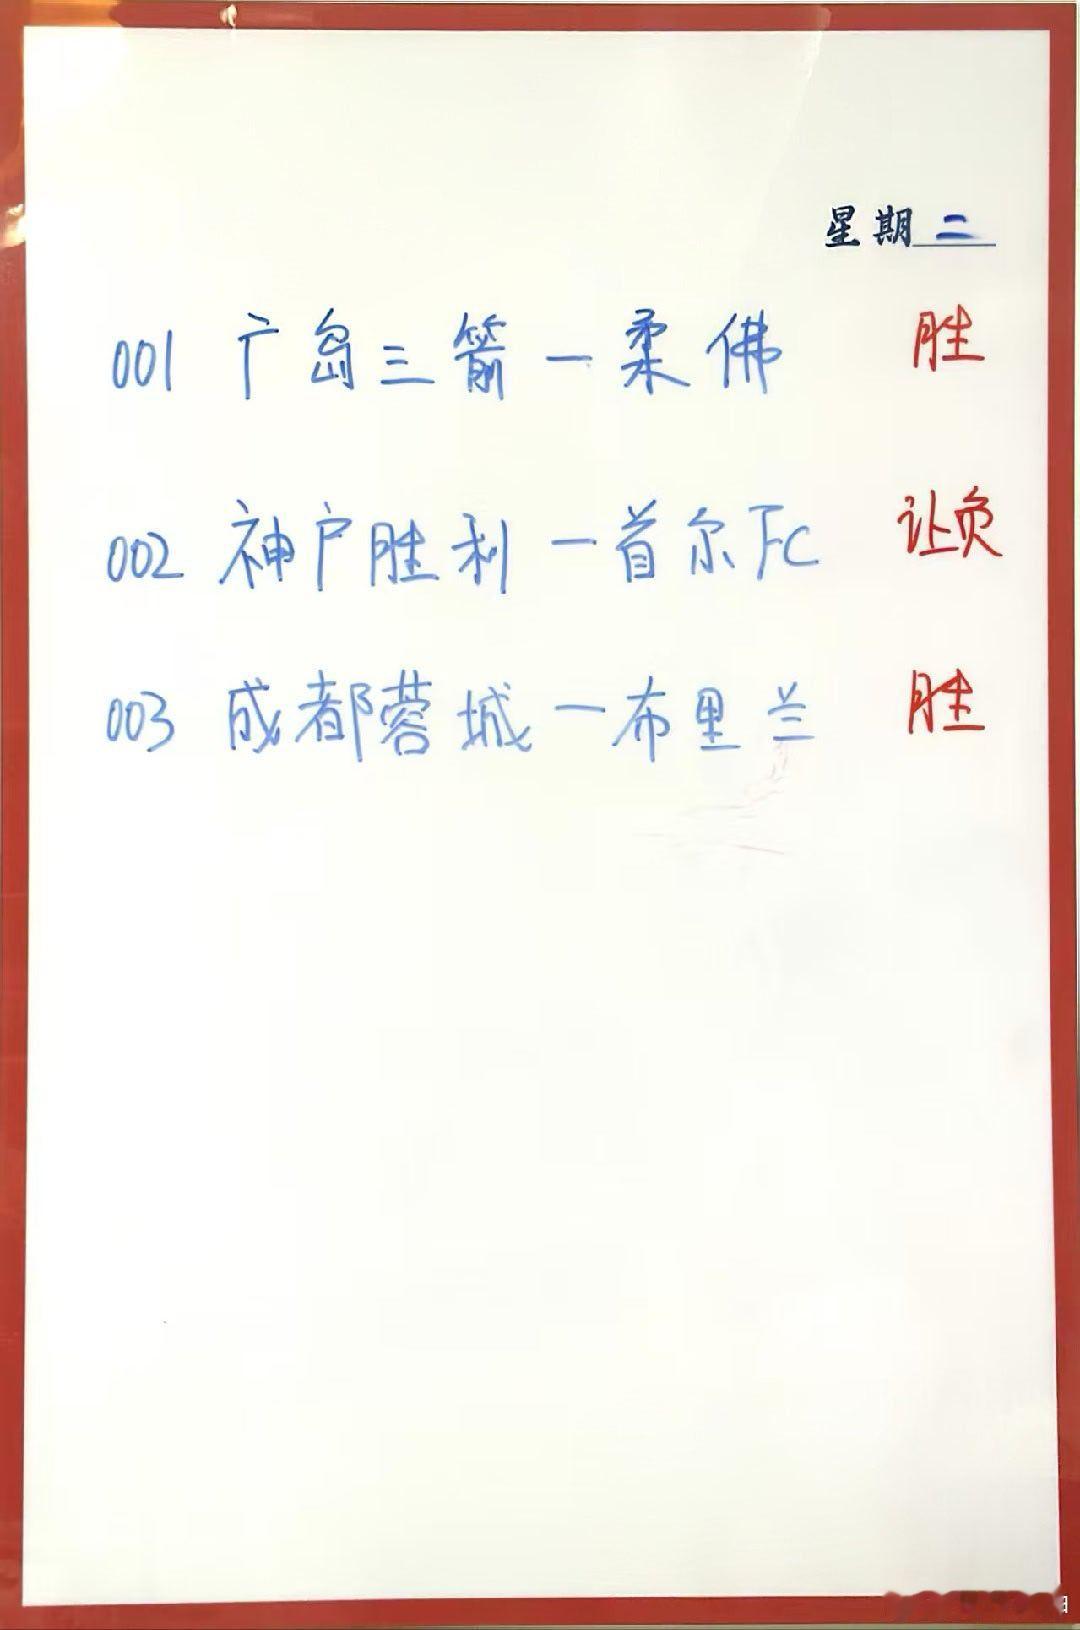 星期二
001 广岛三箭一柔佛 胜
002 神户胜利一首尔FC 让负
003 成都蓉城一布里兰 胜